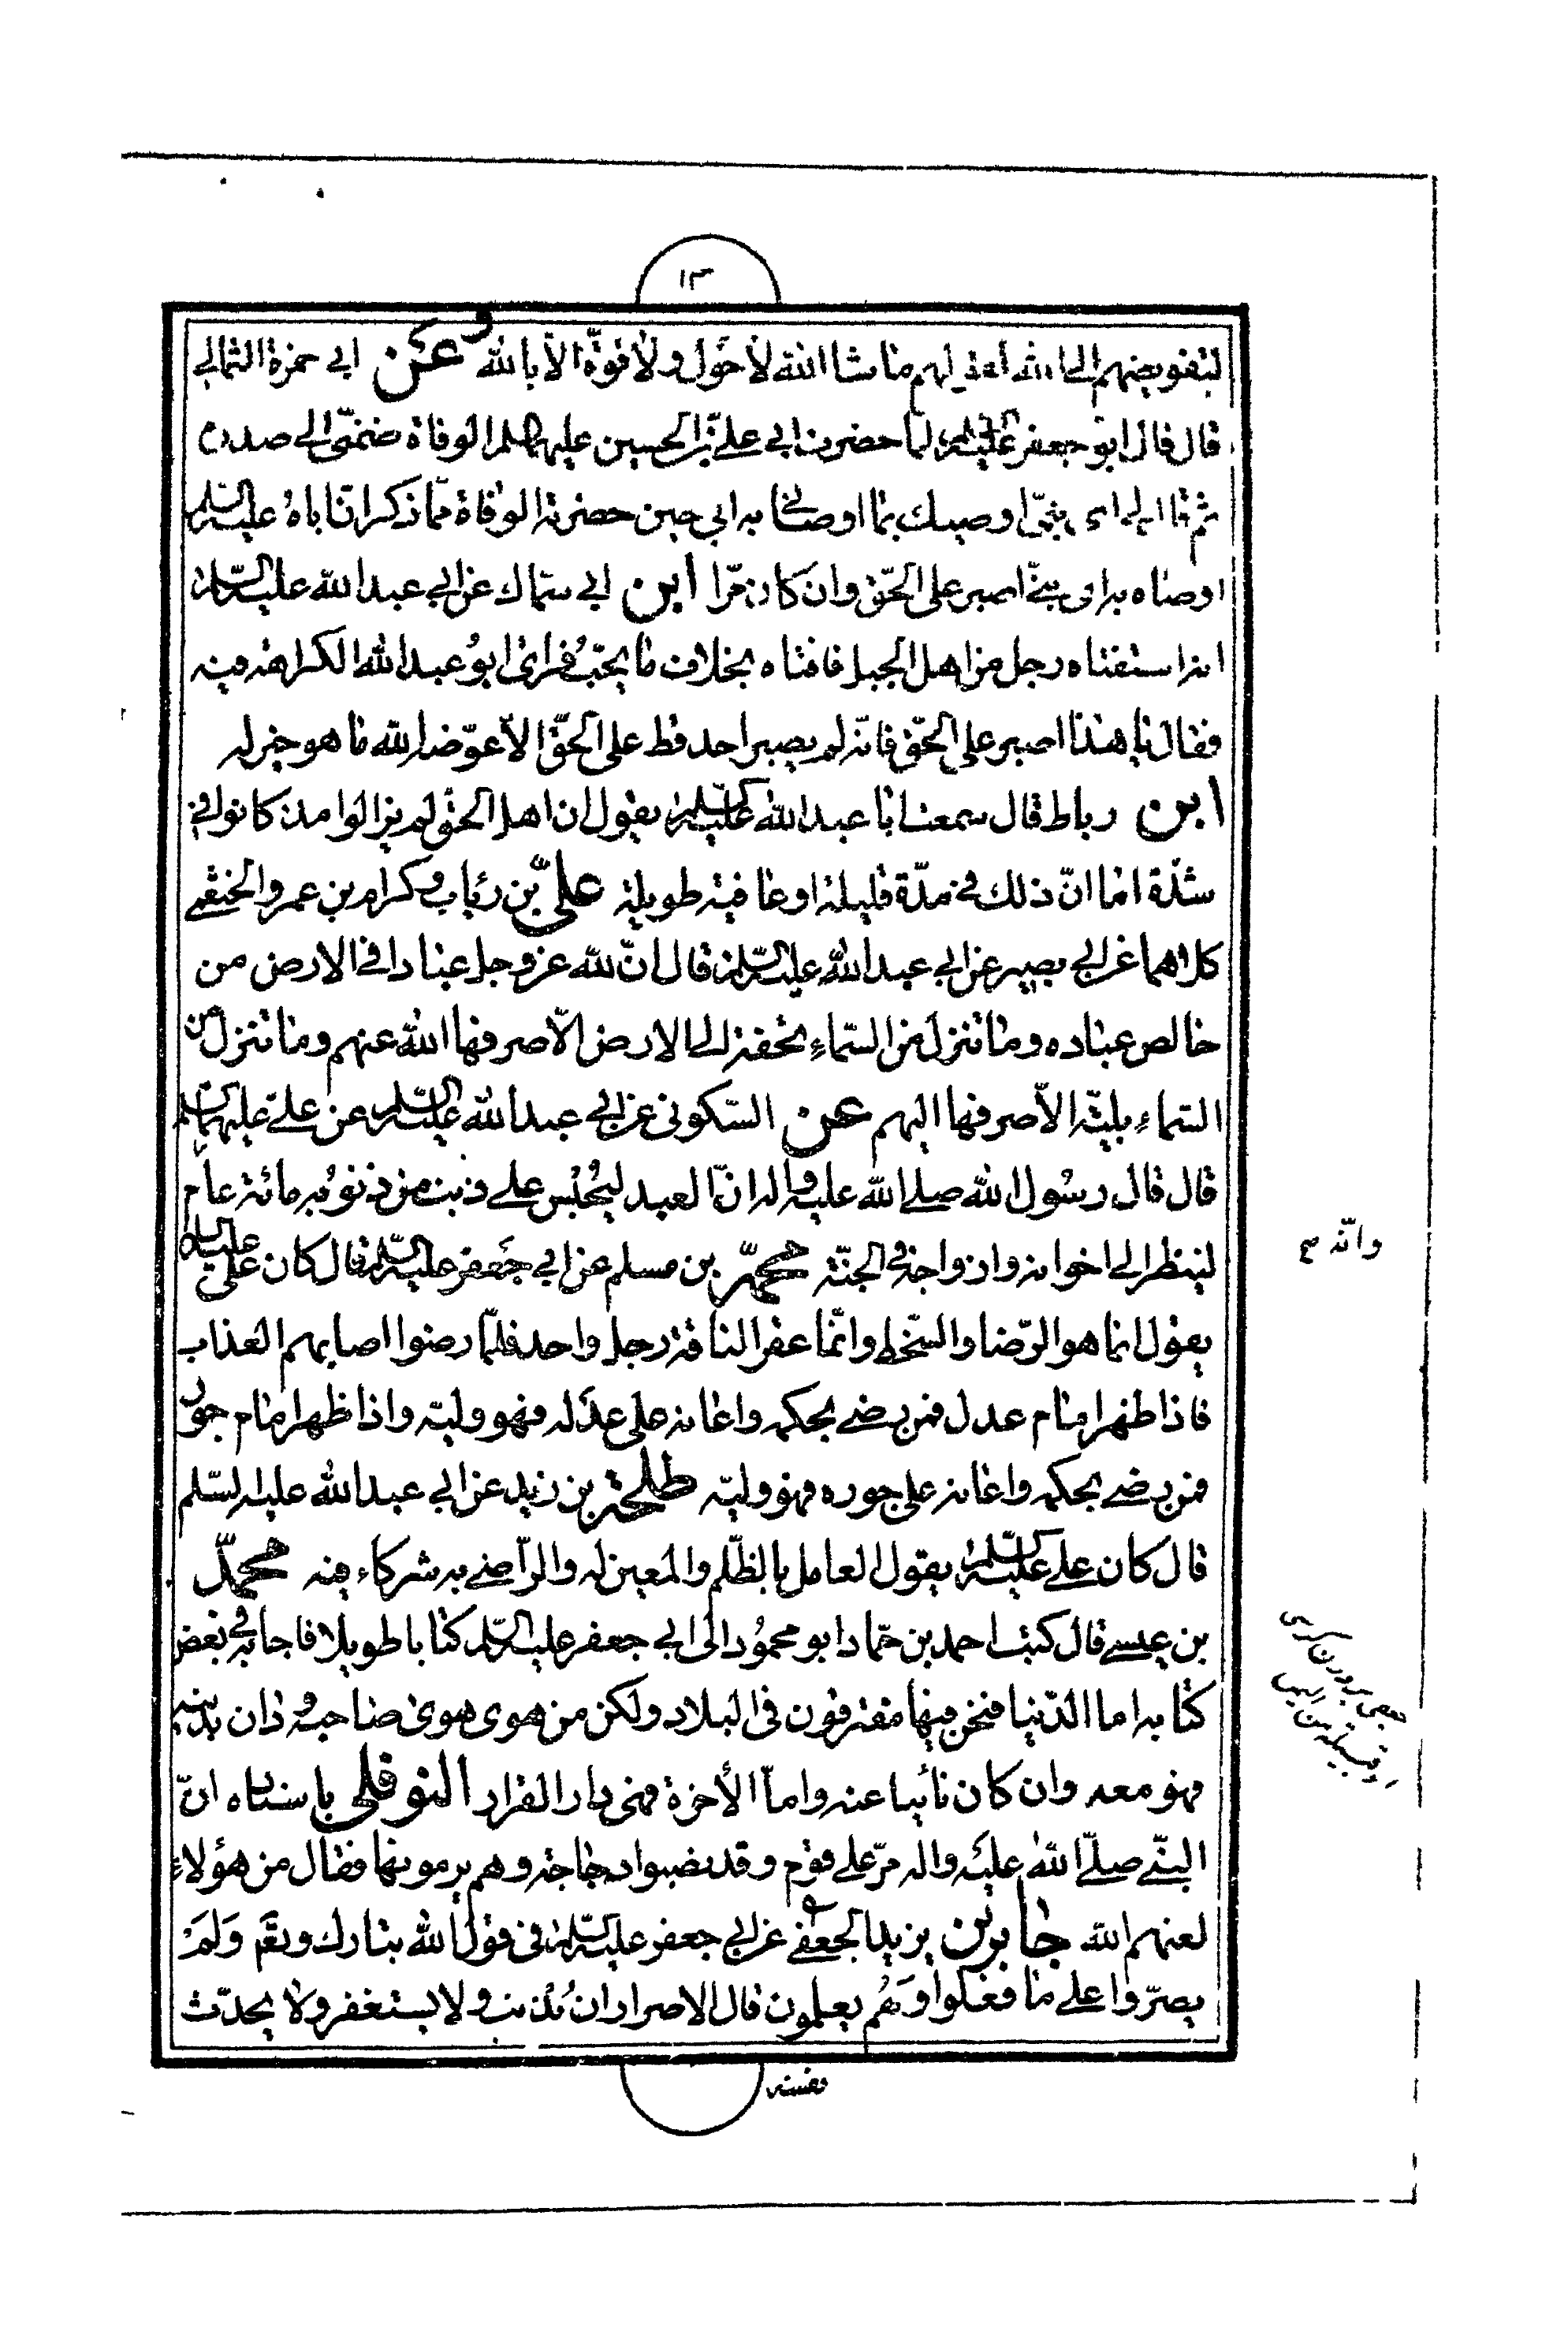 ١٣
لتفويضهم الى الله امرهم ما شاء الله لا حول ولا قوة الا بالله وعن ابي حمزة الثمالي
قال قال ابو جعفر عليه السلم لما حضرت ابي علي بن الحسين عليهما السلم الوفاة ضمني الى صدره
ثم قال اي بني اوصيك بما اوصاني به ابي حين حضرته الوفاة مما ذكر ان اباه عليه السلم
اوصاه به اي بني اصبر على الحق وان كان مرا ابن ابي سماك عن ابي عبد الله عليه السلم
انه استفتاه رجل من اهل الجبل فافتاه بخلاف ما يحب فراى ابو عبد الله الكراهة فيه
فقال يا هذا اصبر على الحق فانه لم يصبر احد قط على الحق الا عوضه الله ما هو خير له
ابن رباط قال سمعت ابا عبد الله عليه السلم يقول ان اهل الحق لم يزالوا مذ كانوا في
شدة اما ان ذلك في مدة قليلة او عافية طويلة علي بن رئاب وكرام بن عمرو الخثعمي
كلاهما عن ابي بصير عن ابي عبد الله عليه السلم قال ان لله عز وجل عبادا في الارض من
خالص عباده وما تنزل من السماء تحفة الى الارض الا صرفها الله عنهم وما تنزل من
السماء بلية الا صرفها اليهم عن السكوني عن ابي عبد الله عليه السلم عن علي عليهما السلم
قال قال رسول الله صلى الله عليه واله ان العبد ليحبس على ذنب من ذنوبه مائة عام
لينظر الى اخوانه وازواجه في الجنة محمد بن مسلم عن ابي جعفر عليه السلم قال كان علي عليه السلم
وانه
يقول انما هو الرضا والسخط وانما عقر الناقة رجل واحد فلما رضوا اصابهم العذاب
فاذا ظهر امام عدل فمن رضي بحكمه واعانه على عدله فهو وليه واذا ظهر امام جور
فمن رضي بحكمه واعانه على جوره فهو وليه طلحة بن زيد عن ابي عبد الله عليه السلم
قال كان علي عليه السلم يقول العامل بالظلم والمعين له والراضي به شركاء فيه محمد
بن عيسى قال كتب احمد بن حماد ابو محمود الى ابي جعفر عليه السلم كتابا طويلا فاجابه في بعض
كتابه اما الدنيا فنحن فيها مفترقون في البلاد ولكن من هوى هوى صاحبه ودان بدينه
فهو معه وان كان نائيا عنه واما الأخرة فهي دار القرار النوفلي باسناده ان
النبي صلى الله عليه واله مر على قوم وقد نصبوا دجاجة وهم يرمونها فقال من هؤلاء
لعنهم الله جابر بن يزيد الجعفي عن ابي جعفر عليه السلم في قول الله تبارك وتع ولم
يصروا على ما فعلوا وهم يعلمون قال الاصرار ان يذنب ولا يستغفر ولا يحدث
نفسه